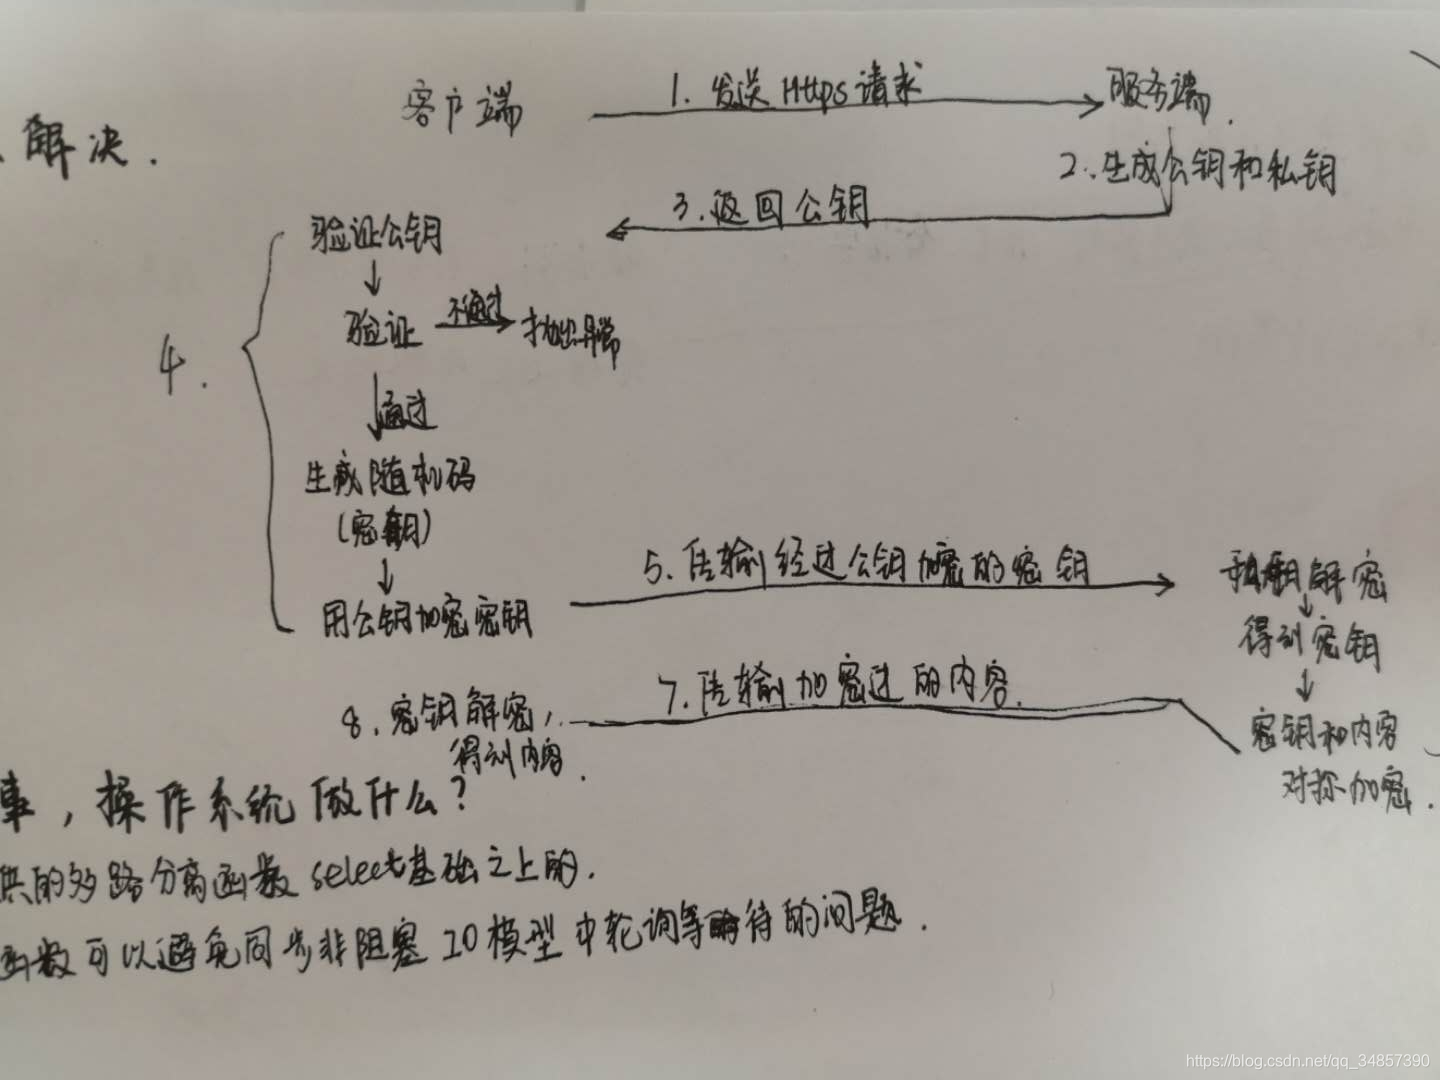 客户端
1. 发送Https请求
服务端.
解决.
2. 生成公钥和私钥
3. 返回公钥
验证公钥
验证
不通过
抛出异常
4.
通过
生成随机码
(密钥)
用公钥加密密钥
5. 传输经过公钥加密的密钥
私钥解密
得到密钥
密钥和内容
对称加密.
7. 传输加密过的内容.
8. 密钥解密,
得到内容.
事,操作系统做什么?
供的多路分离函数select基础之上的.
函数可以避免同步非阻塞IO模型中轮询等待的问题.
https://blog.csdn.net/qq_34857390